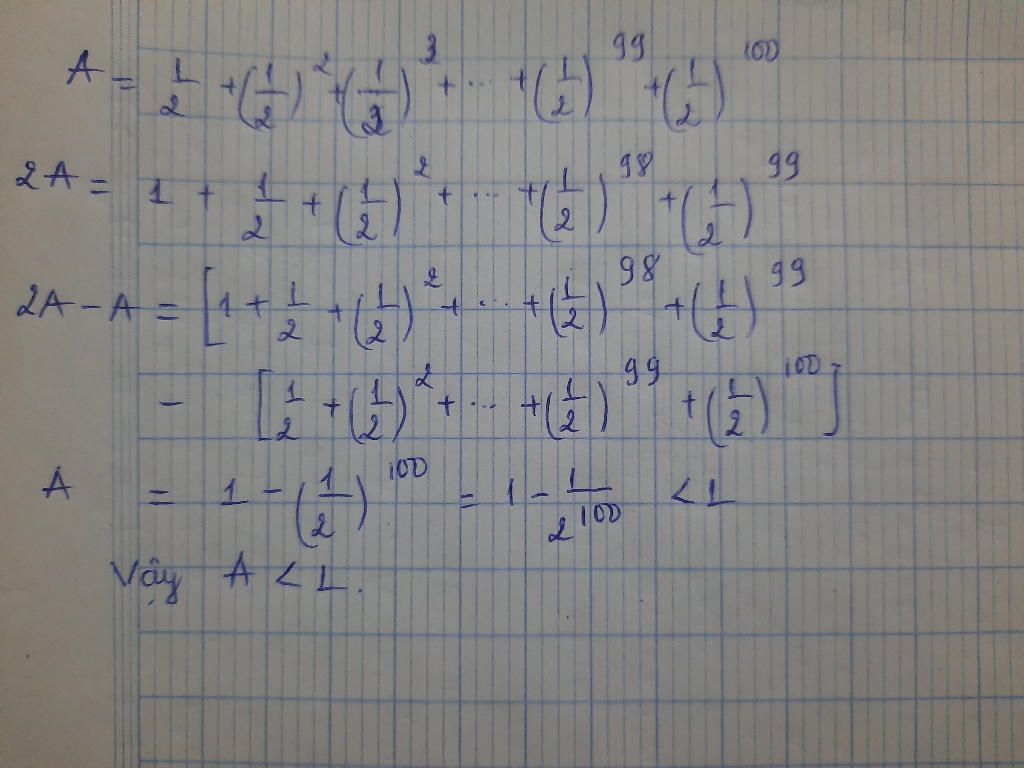 A = 1/2 + (1/2)^2 + (1/3)^3 + ... + (1/2)^99 + (1/2)^100
2A = 1 + 1/2 + (1/2)^2 + ... + (1/2)^98 + (1/2)^99
2A - A = [1 + 1/2 + (1/2)^2 + ... + (1/2)^98 + (1/2)^99
- [1/2 + (1/2)^2 + ... + (1/2)^99 + (1/2)^100]
A = 1 - (1/2)^100 = 1 - 1/2^100 < 1
Vậy A < 1.